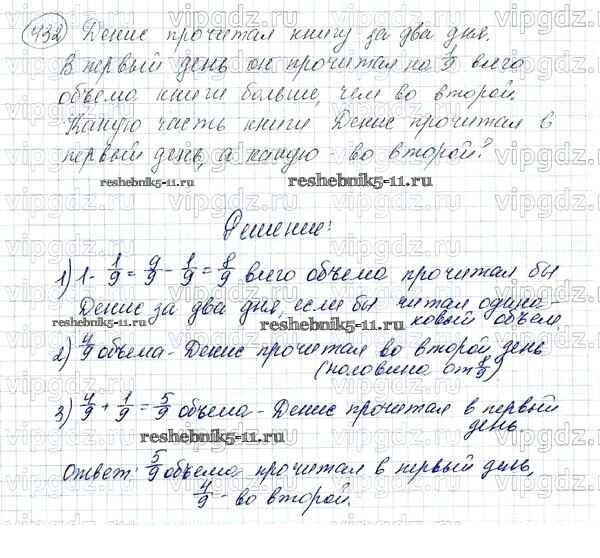 432 Денис прочитал книгу за два дня.
В первый день он прочитал на 1/9 всего
объема книги больше, чем во второй.
Какую часть книги Денис прочитал в
первый день, а какую - во второй?
reshebnik5-11.ru
reshebnik5-11.ru
Решение:
1) 1 - 1/9 = 9/9 - 1/9 = 8/9 всего объема прочитал бы
Денис за два дня, если бы читал одина-
ковый объем
reshebnik5-11.ru
reshebnik5-11.ru
2) 4/9 объема - Денис прочитал во второй день
(половина от 8/9)
3) 4/9 + 1/9 = 5/9 объема - Денис прочитал в первый
день.
reshebnik5-11.ru
Ответ: 5/9 объема прочитал в первый день,
4/9 - во второй.
vipgdz.ru